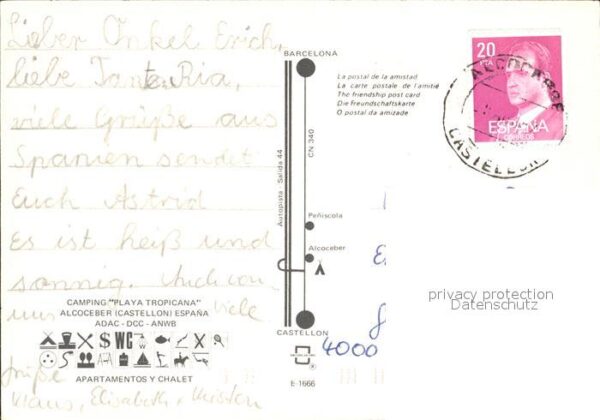 Lieber Onkel Erich,
liebe Tante Ria,
viele Grüße aus
Spanien sendet
Euch Astrid
Es ist heiß und
sonnig. Auch von
uns viele
Grüße
Klaus, Elisabeth + Kristen
CAMPING: "PLAYA TROPICANA"
ALCOCEBER (CASTELLON) ESPAÑA
ADAC - DCC - ANWB
WC
APARTAMENTOS Y CHALET
BARCELONA
Autopista - Salida 44
CN 340
Peñiscola
Alcoceber
CASTELLON
E-1666
La postal de la amistad
La carte postale de l'amitié
The friendship post card
Die freundschaftskarte
O postal da amizade
20
PTA
ESPAÑA
CORREOS
ALCOCEBER
CASTELLON
4000
privacy protection
Datenschutz